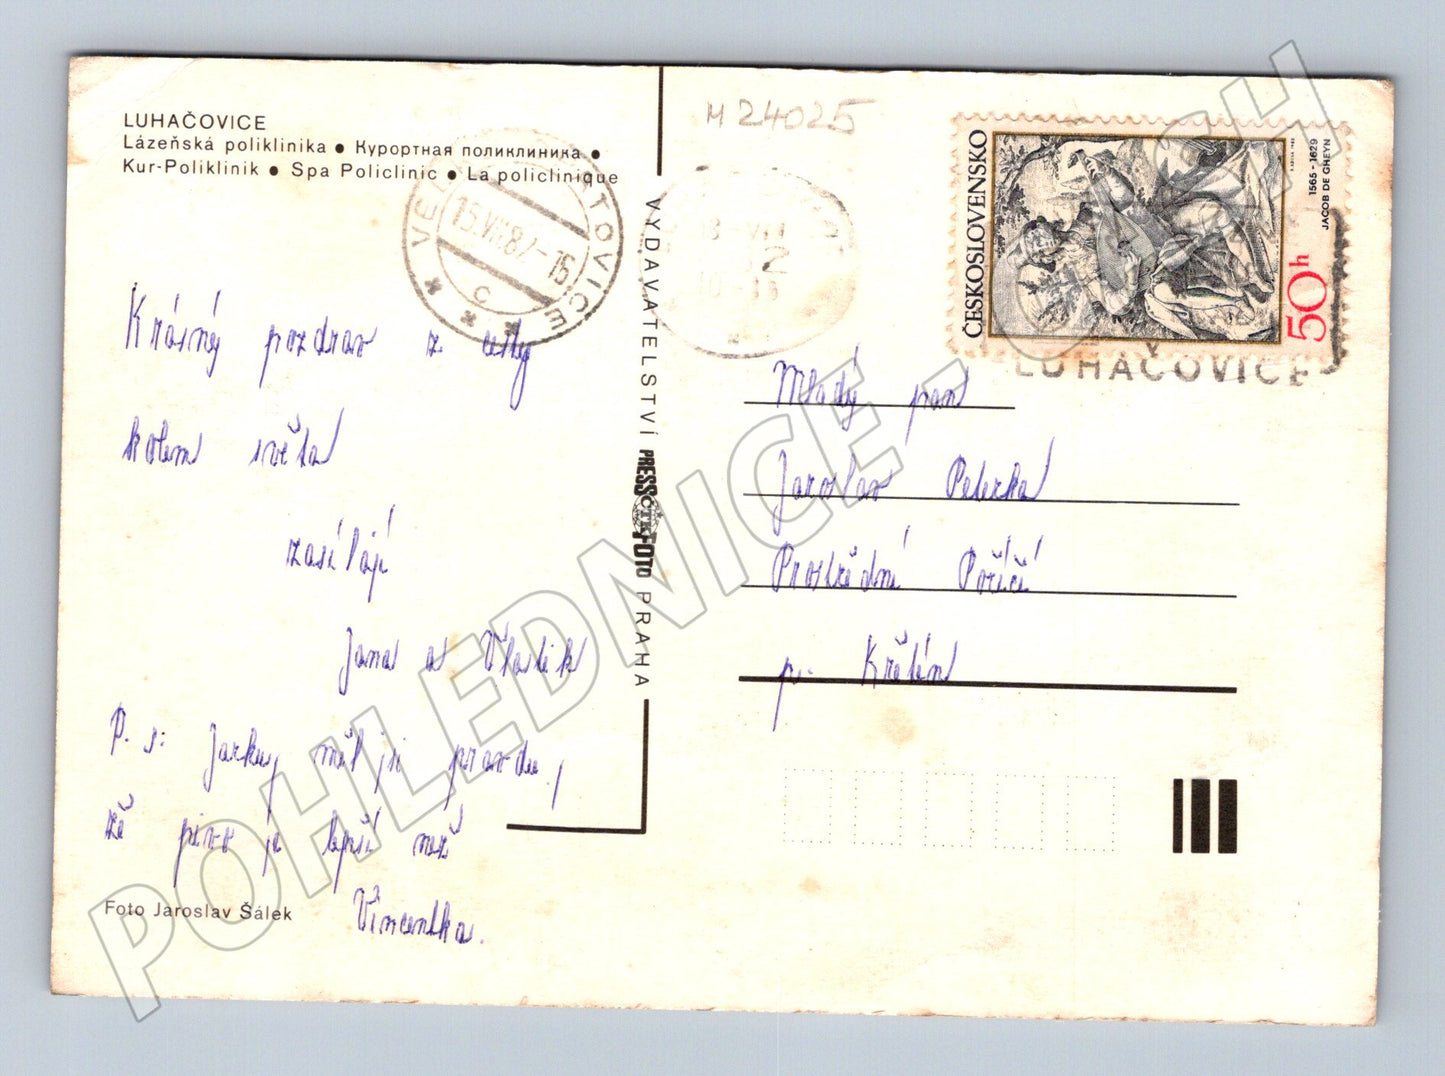 LUHAČOVICE
Lázeňská poliklinika ● Курортная поликлиника ●
Kur-Poliklinik ● Spa Policlinic ● La policlinique
M 24025
15.VII.87-15
ČESKOSLOVENSKO
1565 - 1629
JACOB DE GHEYN
50h
LUHAČOVICE
Krásný pozdrav z cesty
kolem světa
zasílají
Jana a Vlastik
P. s: Jarku, měl jsi pravdu,
že pivo je lepší než
Vincentka.
Foto Jaroslav Šálek
VYDAVATELSTVÍ PRESSFOTO PRAHA
ČTK
Mladý pan
Jaroslav Peterka
Prostřední Poříčí
p. Křetín
POHLEDNICE